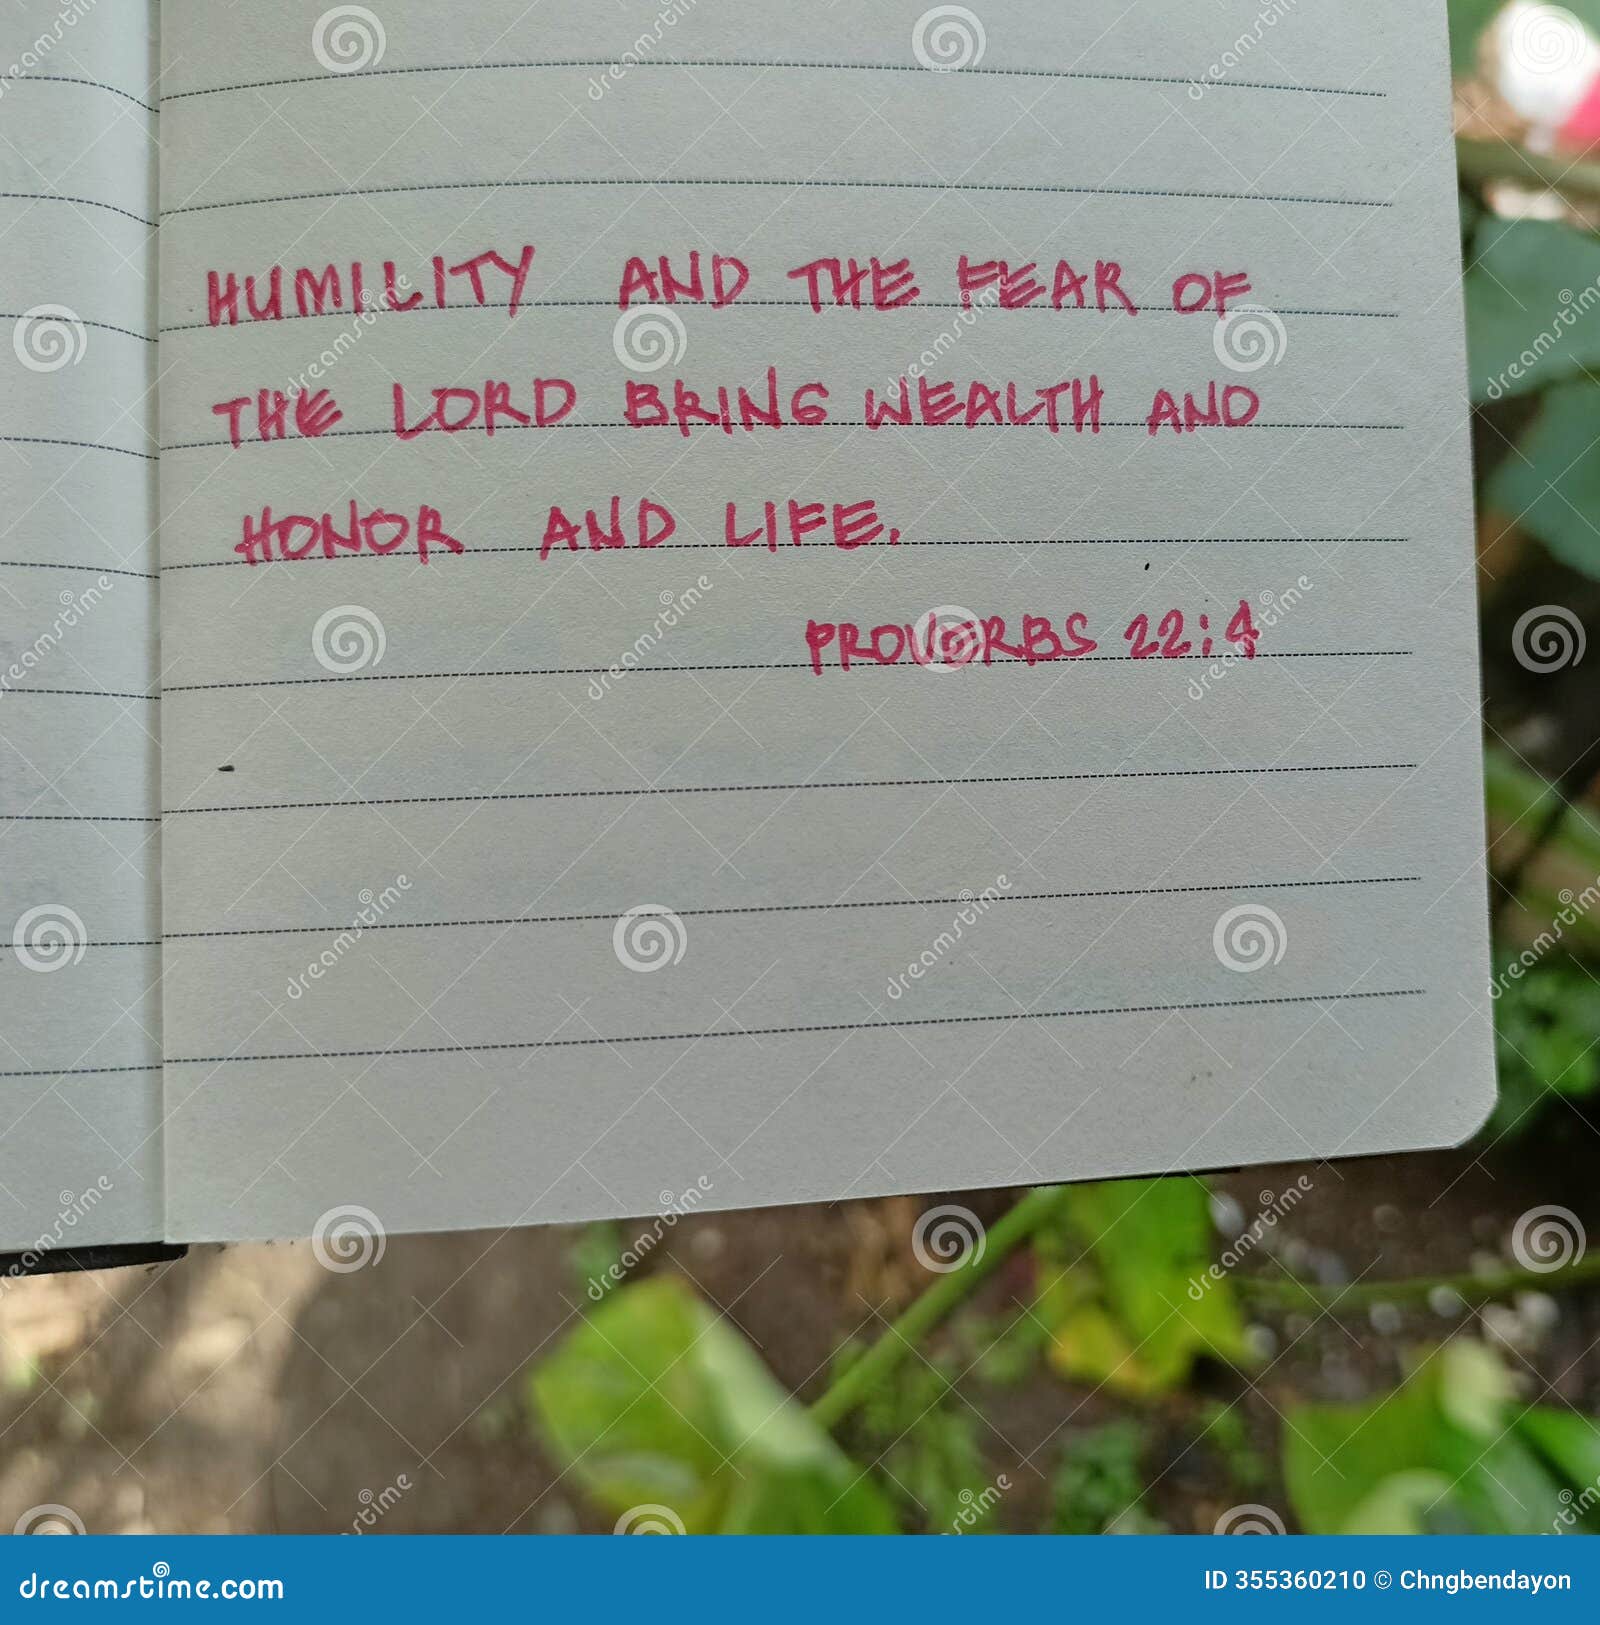 HUMILITY AND THE FEAR OF
THE LORD BRING WEALTH AND
HONOR AND LIFE.
PROVERBS 22:4
dreamstime.com
ID 355360210 © Chngbendayon